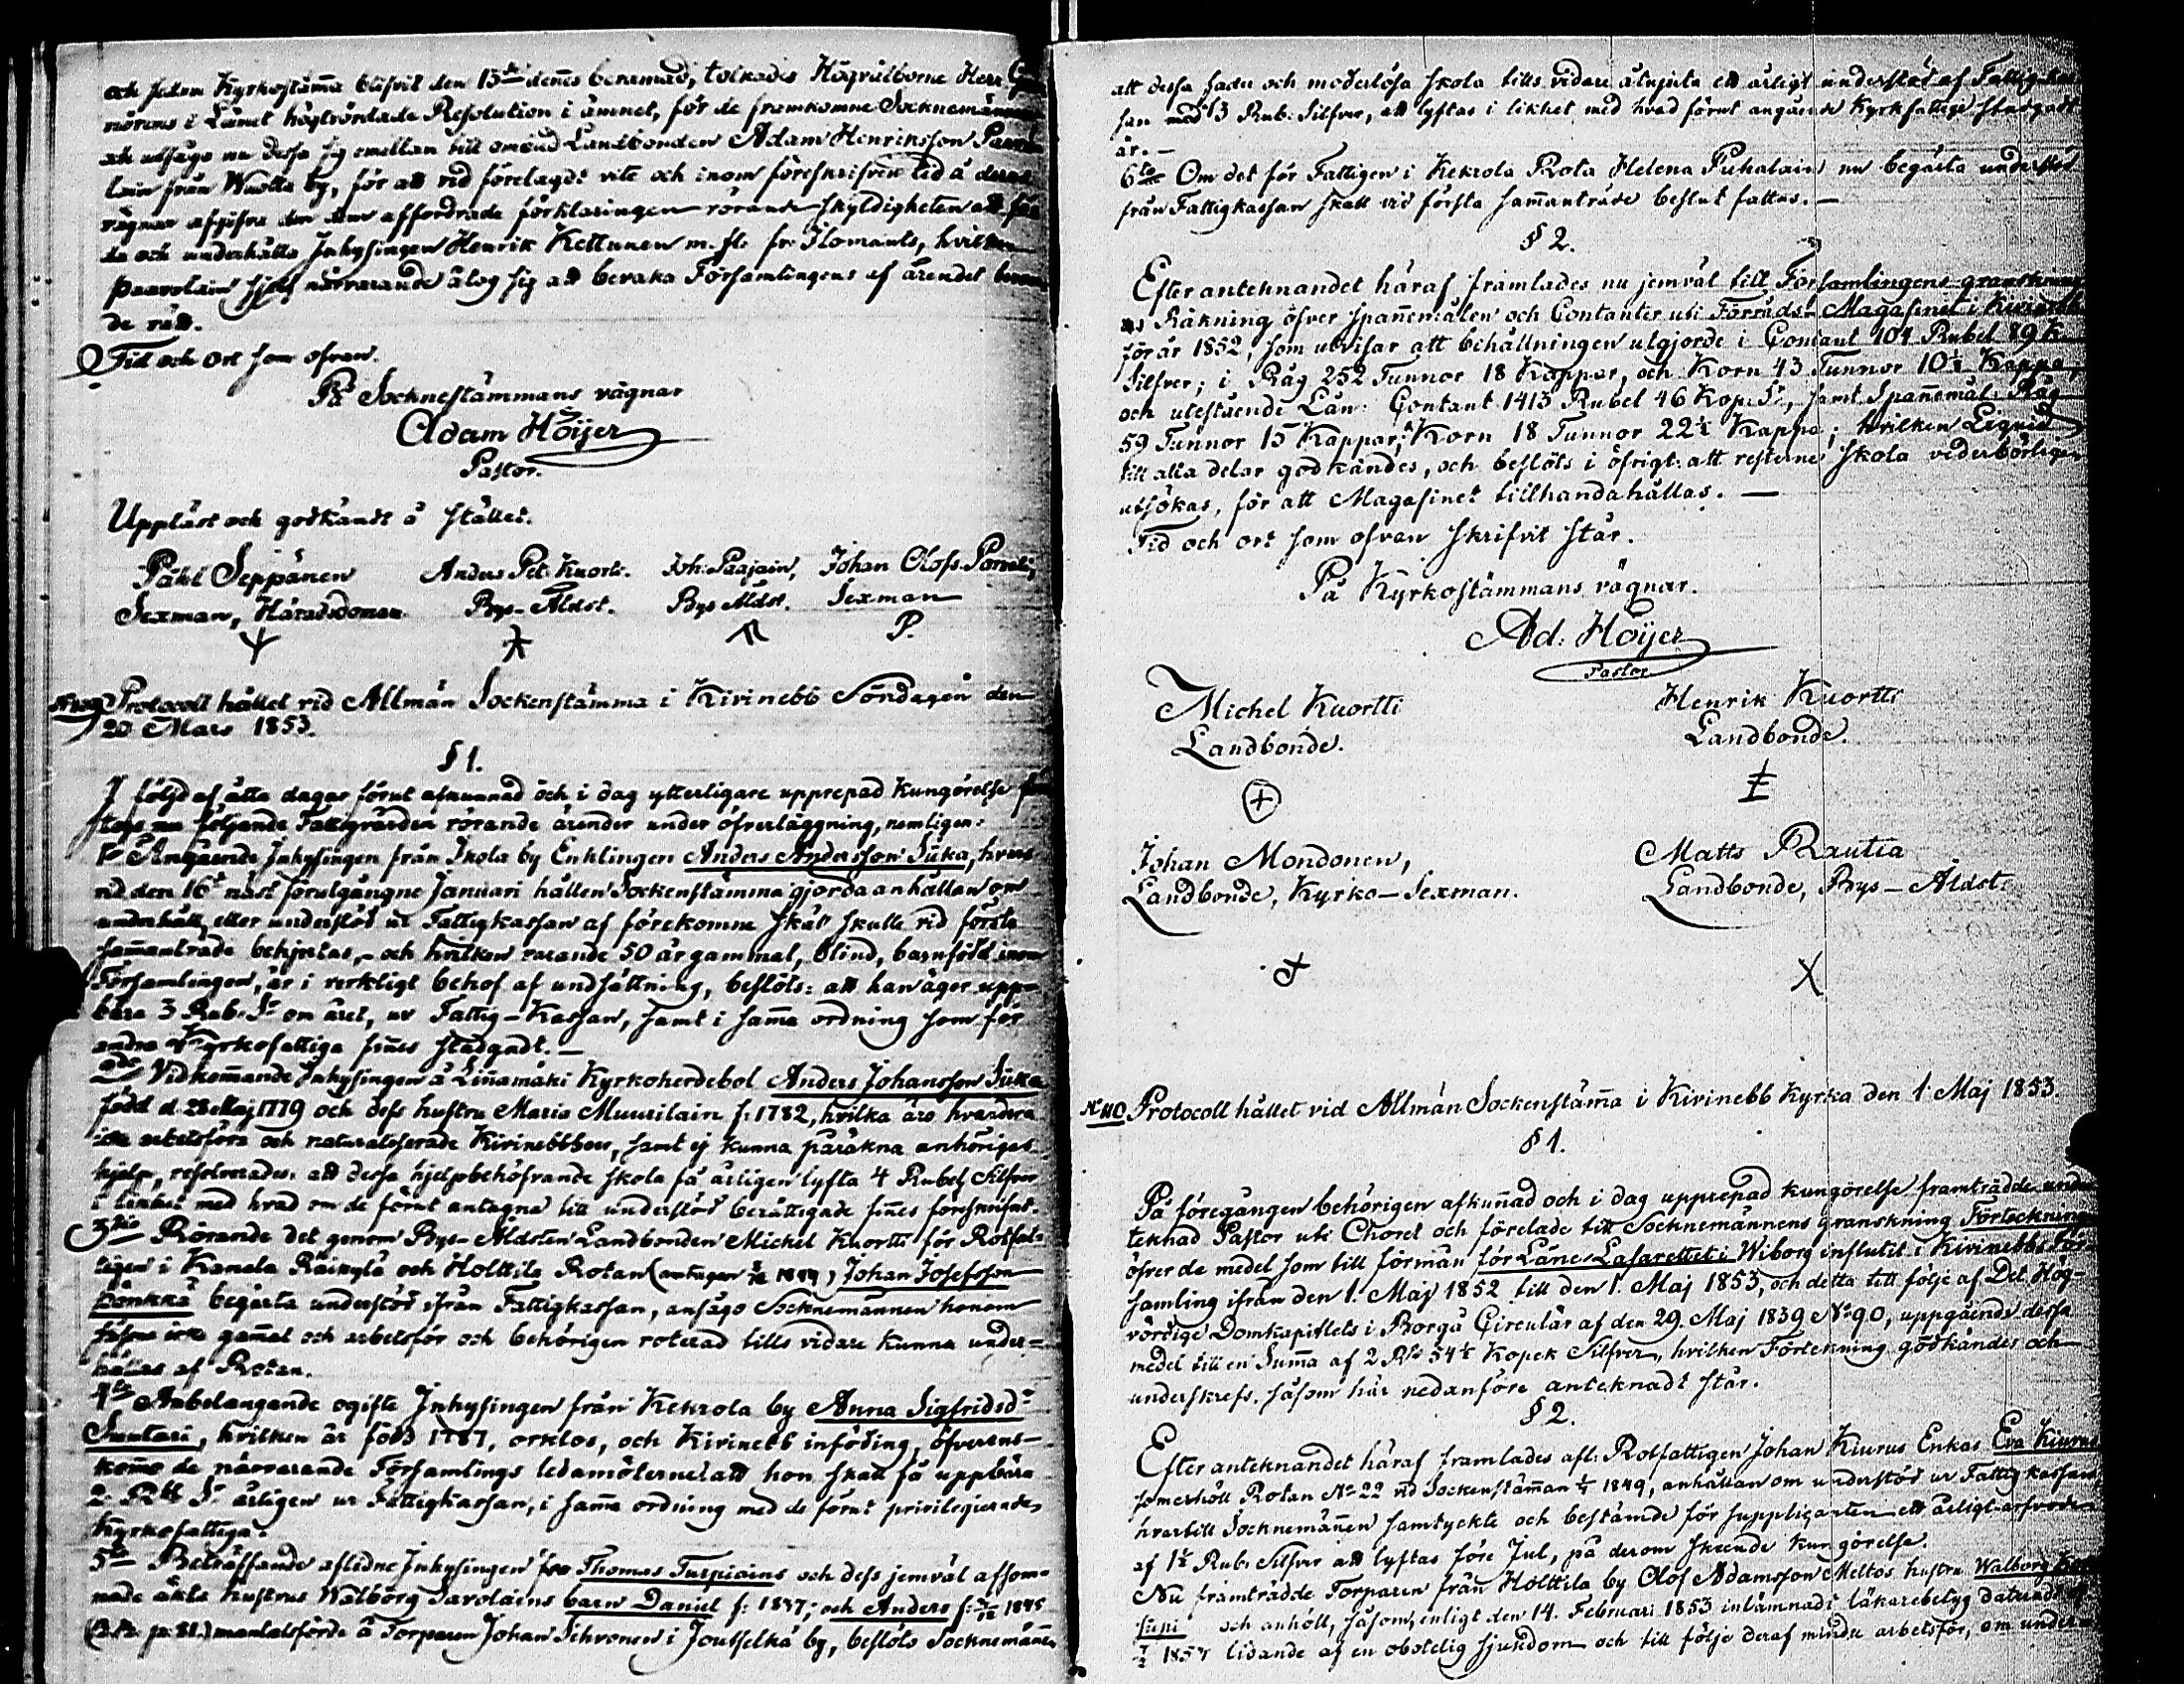 och sedan Kyrkostäm̃a blifvit den 13de dennes beramad, tolkades Högvälborne Herr
nörens i Länet högtvördade Resolution i ämnet, för de framkomne Socknemännen
och utsågo nu desse sig emellan till ombud Landbonden Adam Henriksson
lain från Wuotta by, för att vid förelagdt vite och inom föreskrifven tid å deras
vägnar afgifva den dem affordrade förklaringen rörande skyldigheten att
da och underhålla Inhysingen Henrik Kettunen m. fl. fr. Ilomants, hvilken
Paavolain sjelf närvarande åtog sig att bevaka Församlingens af ärendet
de rätt.
Tid och ort som ofvan.
På Socknestämmans vägnar
Adam Höijer
Pastor.
Uppläst och godkändt å stället.
Påhl Seppänen Anders Pet. Kuortti. Joh: Paajain, Johan Olofs.
Sexman, Häradsdomare. Bys-Äldst. Bys Äldst. Sexman
P.
N:o 109 Protocoll hållet vid Allmän Sockenstämma i Kivinebb Söndagen den
20 Mars 1853.
§ 1.
I följd af åtta dagar förut afkunnad och i dag ytterligare upprepad Kungörelse
togs nu följande Fattigvården rörande ärender under öfverläggning, nemligen:
1o Angående Inhysingen från Ikola by Enklingen Anders Andersson Süka, hvars
vid den 16de näst förutgångne Januari hållen Sockenstämma gjorda anhållan om
underhåll, eller understöd ur Fattigkassan af förekomne skäl skulle vid första
sam̃anträde behjertas, och hvilken varande 50 år gammal, blind, barnfödd inom
Församlingen, är i verkligt behof af undsättning, beslöts: att han äger upp-
bära 3 Rub. Sr om året, ur Fattig-Kassan, samt i sam̃a ordning som för
andra Kyrkofattige fin̄es stadgadt. —
2do Vidkom̃ande Inhysingen å Lin̄amäki Kyrkoherdebol Anders Johansson Süka
född d. 28 Maj 1779 och dess hustru Maria Muurilain f: 1782, hvilka äro hvardera
icke arbetsföra och naturaliserade Kivinebbboer, samt ej kunna påräkna anhörigas
hjelp, resolverades: att dessa hjelpbehöfvande skola få årligen lyfta 4 Rubel Silfver
i likhet med hvad om de förut antagna till understöd berättigade fin̄es föreskrifvet.
3tio Rörande det genom Bys-Äldsten Landbonden Michel Kuortti för Rotfat-
tigen i Kanala Räikylä och Holttila Rotan (antagen 1849) Johan Josefsson
Pönkkä begärta understöd ifrån Fattigkassan, ansågo Socknemännen honom
såsom icke gam̃al och arbetsför och behörigen roterad tills vidare kunna under-
hållas af Rotan.
4to Anbelangande ogifta Inhysingen från Kekrola by Anna Sigfridsdr
Suutari, hvilken är född 1787, orklös, och Kivinebb inföding, öfverens-
kom̃o de närvarande Församlings ledamöterne: att hon skall få uppbära
2. Rbl Sr årligen ur Fattigkassan, i sam̃a ordning med de förut privilegierade
Kyrkofattiga.
5to Beträffande aflidne Inhysingen Thomas Turpiains och dess jemväl afsom-
nade äkta hustrus Walborg Savolains barn Daniel f: 1837; och Anders f: 1845
(B.B. p: 81.) mantalsförde å Torparen Johan Sihvonen i Joutselkä by, beslöto Socknemän̄en
att dessa fader och moderlösa skola tills vidare åtnjuta ett årligt understöd af
san med 3 Rub: Silfver, att lyftas i likhet med hvad förut angående Kyrkfattige stadgadt
är. —
6to Om det för Fattigen i Kekrola Rota Helena Pukalain nu begärta understöd
från Fattigkassan skall vid första sam̃anträde beslut fattas. —
§ 2.
Efter antecknandet häraf framlades nu jemväl till Församlingens granskning
Räkning öfver span̄emålen och Contanter uti Förråds-Magasinet i Kivinebb
för år 1852, som utvisar att behållningen utgjorde i Contant 404 Rubel 89 K.
Silfver; i Råg 252 Tunnor 18 Kappar, och Korn 43 Tunnor 10½ Kappa,
och utestående Lån: Contant 1413 Rubel 46 Kop. Sr, samt Span̄emål: Råg
59 Tunnor 15 Kappar, Korn 18 Tunnor 22½ Kappa; hvilken Liquid
till alla delar godkändes, och beslöts i öfrigt: att resterne skola vederbörligen
utsökas, för att Magasinet tillhandahållas. —
Tid och ort som ofvan skrifvit står.
På Kyrkostämmans vägnar.
Ad: Höijer
Pastor
Michel Kuortti Henrik Kuortti
Landbonde. Landbonde.
Johan Mondonen, Matts Rautia
Landbonde, Kyrko-Sexman. Landbonde, Bys-Äldste
N:o 110 Protocoll hållet vid Allmän Sockenstäm̃a i Kivinebb Kyrka den 1 Maj 1853.
§ 1.
På föregången behörigen afkun̄ad och i dag upprepad kungörelse framträdde
tecknad Pastor uti Choret och förelade till Socknemännens granskning Förteckningen
öfver de medel som till förmån för Läne-Lasarettet i Wiborg influtit i Kivinebb För-
samling ifrån den 1. Maj 1852 till den 1. Maj 1853, och detta till följe af Det Hög-
vördige Domkapitlets i Borgå Circulär af den 29. Maj 1839 No 90, uppgående dessa
medel till en Sum̃a af 2 Rbl 54½ Kopek Silfver, hvilken Förtekning godkändes och
underskrefs, såsom här nedanföre anteknadt står.
§ 2.
Efter anteknandet häraf framlades afl: Rotfattigen Johan Kiurus Enkas Eva Kiurus
som erhöll Rotan No 22 vid Sockenstäm̃an 1849, anhållan om understöd ur Fattigkassan
hvartill Socknemän̄en samtyckte och bestämde för suppliganten ett årligt arfvode
af 1½ Rub. Silfver att lyftas före Jul, på derom skeende kungörelse.
Nu framträdde Torparen från Holttila by Olof Adamsson Meltos hustru Walborg
och anhöll, såsom, enligt den 14. Februari 1853 inlämnadt läkarebetyg
lidande af en obotelig sjukdom och till följe deraf mindre arbetsför, om